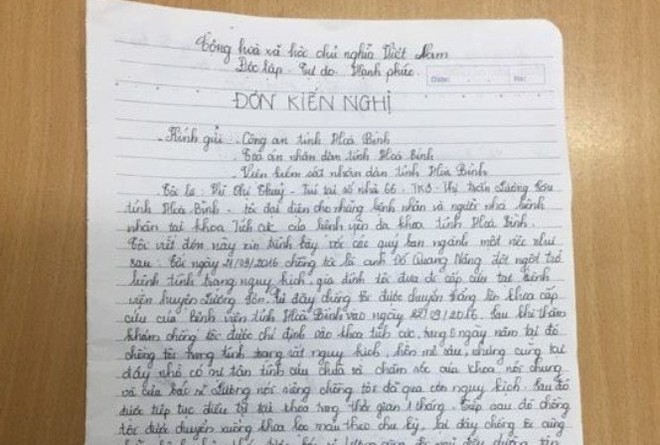 Cộng hoà xã hội chủ nghĩa Việt Nam
Độc lập - Tự do - Hạnh phúc.
Date: No:
ĐƠN KIẾN NGHỊ
- Kính gửi - Công an tỉnh Hoà Bình
- Toà án nhân dân tỉnh Hoà Bình
- Viện kiểm sát nhân dân tỉnh Hoà Bình
Tôi là: Thị Thuỷ - Trú tại số nhà 66 - TK3 - Thị trấn Lương Sơn
tỉnh Hoà Bình - tôi đại diện cho những bệnh nhân và người nhà bệnh
nhân tại khoa Tích cực của bệnh viện đa khoa tỉnh Hoà Bình.
Tôi viết đơn này xin trình bày với các quý ban ngành một việc như
sau: Tôi ngày 21/09/2016 chồng tôi là anh Đỗ Quang Năng đột ngột trở
bệnh tình trạng nguy kịch, gia đình tôi đưa đi cấp cứu tại bệnh
viện huyện Lương Sơn. Từ đây chồng tôi được chuyển thẳng lên khoa cấp
cứu của bệnh viện tỉnh Hoà Bình vào ngày /09/2016. Sau khi thăm
khám chồng tôi được chỉ định vào khoa tích cực, trong ngày nằm tại đó
chồng tôi trong tình trạng rất nguy kịch, hôn mê sâu, nhưng cũng tại
đây nhờ có sự tận tình cứu chữa và chăm sóc của khoa nói chung
và của bác sĩ Lương nói riêng chồng tôi đã qua cơn nguy kịch. Sau đó
được tiếp tục điều trị tại khoa trong thời gian 1 tháng. Tiếp sau đó chồng
tôi được chuyển xuống khoa lọc máu theo chu kỳ, tại đây chồng tôi cũng